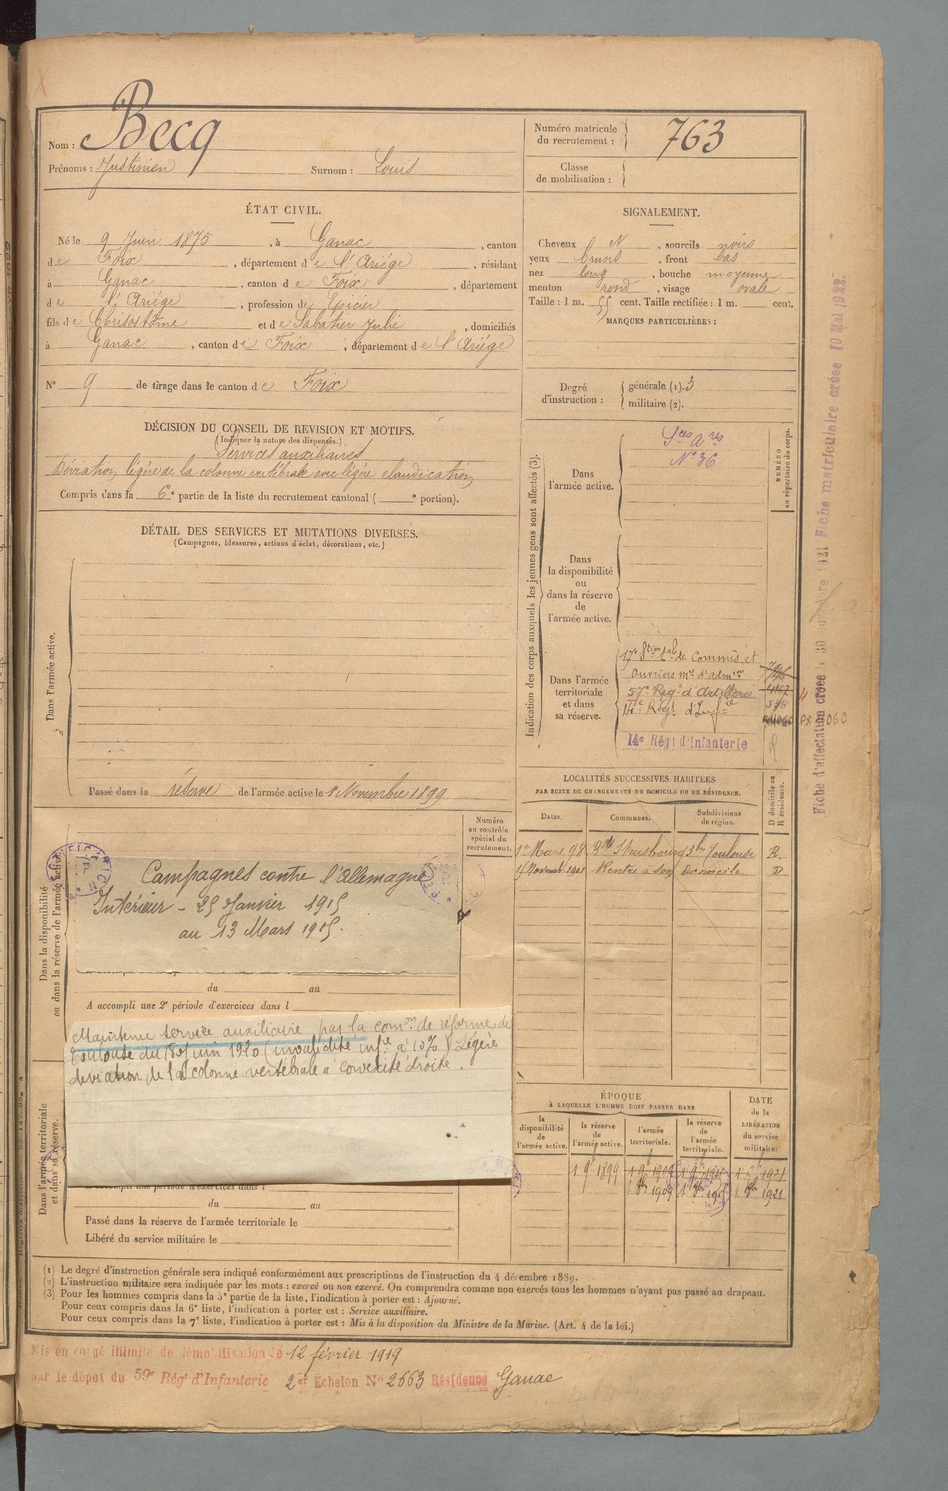 Nom : Becq
Prénoms : Justinien Surnom : Louis
Numéro matricule
du recrutement : 763
Classe
de mobilisation :
ÉTAT CIVIL.
Né le 9 Juin 1875, à Ganac, canton
de Foix, département de l'Ariége, résidant
à Ganac, canton de Foix, département
de l'Ariége, profession de Epicier
fils de Chrisostôme et de Sabatier Julie, domiciliés
à Ganac, canton de Foix, département de l'Ariége
N° 9 de tirage dans le canton de Foix
SIGNALEMENT.
Cheveux N, sourcils noirs
yeux bruns, front bas
nez long, bouche moyenne
menton rond, visage ovale
Taille : 1 m. 55 cent. Taille rectifiée : 1 m. cent.
MARQUES PARTICULIÈRES :
Degré
d'instruction :
générale (1). 3
militaire (2).
DÉCISION DU CONSEIL DE REVISION ET MOTIFS.
(Indiquer la nature des dispenses.)
Services auxiliaires
Déviation légère de la colonne vertébrale avec légère claudication
Compris dans la 6e partie de la liste du recrutement cantonal ( e portion).
DÉTAIL DES SERVICES ET MUTATIONS DIVERSES.
(Campagnes, blessures, actions d'éclat, décorations, etc.)
Dans l'armée active.
Passé dans la réserve de l'armée active le 1 Novembre 1899
Indication des corps auxquels les jeunes gens sont affectés (3).
NUMÉRO
au répertoire du corps.
Dans
l'armée active.
Sces Ares
N° 36
Dans
la disponibilité
ou
dans la réserve
de
l'armée active.
Dans l'armée
territoriale
et dans
sa réserve.
17e Son tale de Commis et
Ouvriers mre d'admon
57e Regt d'Artillerie
14e Regt d'Infie
14e Régt d'Infanterie
LOCALITÉS SUCCESSIVES HABITÉES
PAR SUITE DE CHANGEMENTS DE DOMICILE OU DE RÉSIDENCE.
Dates. Communes. Subdivisions
de région.
D domicile ou
R résidence.
1er Mars 98 Bd Strasbourg 3 bis Toulouse R.
Rentré à son Domicile D
Numéro
au contrôle
spécial du
recrutement.
Dans la disponibilité
ou dans la réserve de l'armée active.
Campagnes contre l'Allemagne
Intérieur - 25 Janvier 1915
au 13 Mars 1915.
du au
A accompli une 2e période d'exercices dans l
Maintenu service auxiliaire par la comon de réforme de
Toulouse du 18 Juin 1920 (invalidité infre à 10%) Légère
déviation de la colonne vertébrale à convexité droite.
Dans l'armée territoriale
et dans sa réserve.
du au
Passé dans la réserve de l'armée territoriale le
Libéré du service militaire le
ÉPOQUE
À LAQUELLE L'HOMME DOIT PASSER DANS
DATE
de la
LIBÉRATION
du service
militaire.
la
disponibilité
de
l'armée active.
la réserve
de
l'armée active.
l'armée
territoriale.
la réserve
de
l'armée
territoriale.
1 9e 1899
1 8bre 1909 1 8bre 1921
(1) Le degré d'instruction générale sera indiqué conformément aux prescriptions de l'instruction du 4 décembre 1889.
(2) L'instruction militaire sera indiquée par les mots : exercé ou non exercé. On comprendra comme non exercés tous les hommes n'ayant pas passé au drapeau.
(3) Pour les hommes compris dans la 5e partie de la liste, l'indication à porter est : Ajourné.
Pour ceux compris dans la 6e liste, l'indication à porter est : Service auxiliaire.
Pour ceux compris dans la 7e liste, l'indication à porter est : Mis à la disposition du Ministre de la Marine. (Art. 4 de la loi.)
Mis en congé illimité de démobilisation le 12 février 1919
par le dépôt du 59e Régt d'Infanterie 2e Echelon N° 2563 Résidence Ganac
Fiche matriculaire créée 10 Mai 1922.
Fiche d'affectation créée le 30